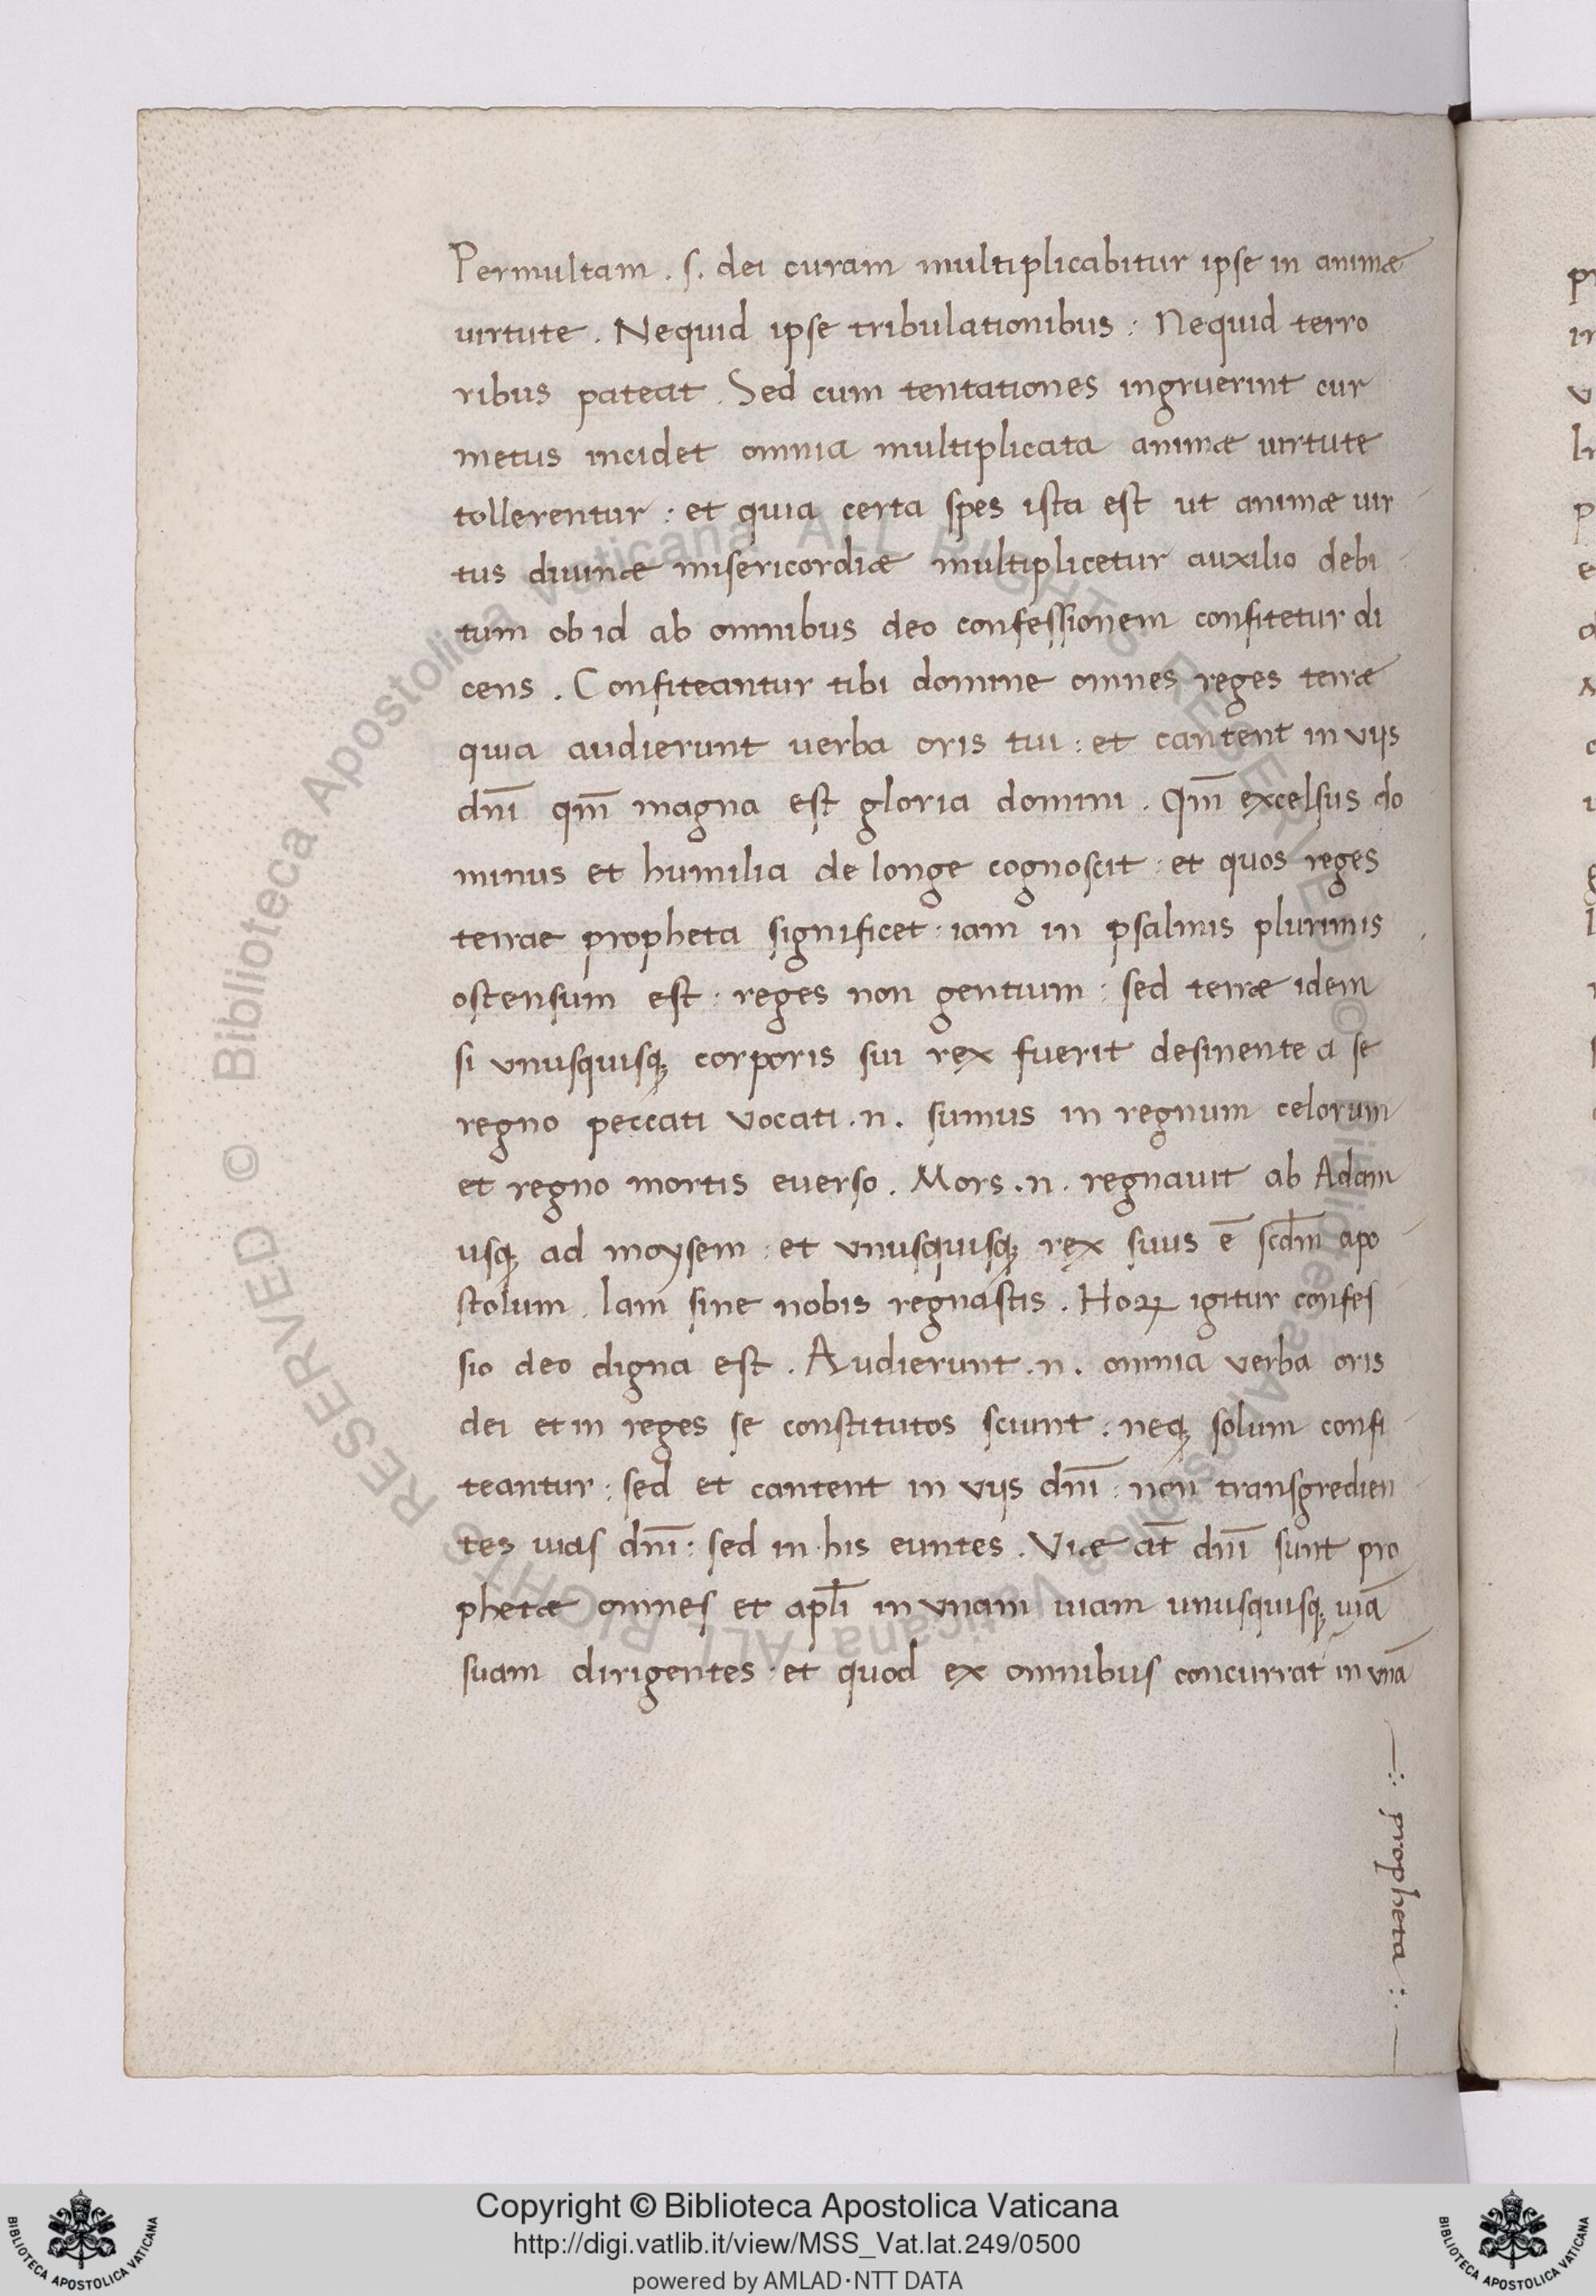 Permultam . s. dei curam multiplicabitur ipse in animæ
uirtute . Nequid ipse tribulationibus : Nequid terro
ribus pateat . Sed cum tentationes ingruerint cur
metus incidet omnia multiplicata animæ uirtute
tollerentur : et quia certa spes ista est ut animæ uir
tus diuinæ misericordiæ multiplicetur auxilio debi
tum ob id ab omnibus deo confessionem confitetur di
cens . Confiteantur tibi domine omnes reges terræ
quia audierunt uerba oris tui : et cantent in vijs
dñi qm̃ magna est gloria domini . Qm̃ excelsus do
minus et humilia de longe cognoscit : et quos reges
terrae propheta significet : iam in psalmis plurimis
ostensum est : reges non gentium : sed terræ idem
si vnusquisq; corporis sui rex fuerit desinente a se
regno peccati vocati . n . sumus in regnum celorum
et regno mortis euerso . Mors . n . regnauit ab Adam
usq; ad moysem : et vnusquisq; rex suus ē scdm̃ apo
stolum . Iam sine nobis regnastis . Hoꝝ igitur confes
sio deo digna est . Audierunt . n . omnia verba oris
dei et in reges se constitutos sciunt : neq; solum confi
teantur : sed et cantent in vijs dñi : non transgredien
tes uias dñi : sed in his euntes . Viæ at̃ dñi sunt pro
phetæ omnes et apl̃i in vnam uiam unusquisq; uiā
suam dirigentes : et quod ex omnibus concurrat in vnā
—:· propheta :·—
Copyright © Biblioteca Apostolica Vaticana
http://digi.vatlib.it/view/MSS_Vat.lat.249/0500
powered by AMLAD·NTT DATA
BIBLIOTECA APOSTOLICA VATICANA
BIBLIOTECA APOSTOLICA VATICANA
© Biblioteca Apostolica Vaticana ALL RIGHTS RESERVED © Biblioteca Apostolica Vaticana ALL RIGHTS RESERVED